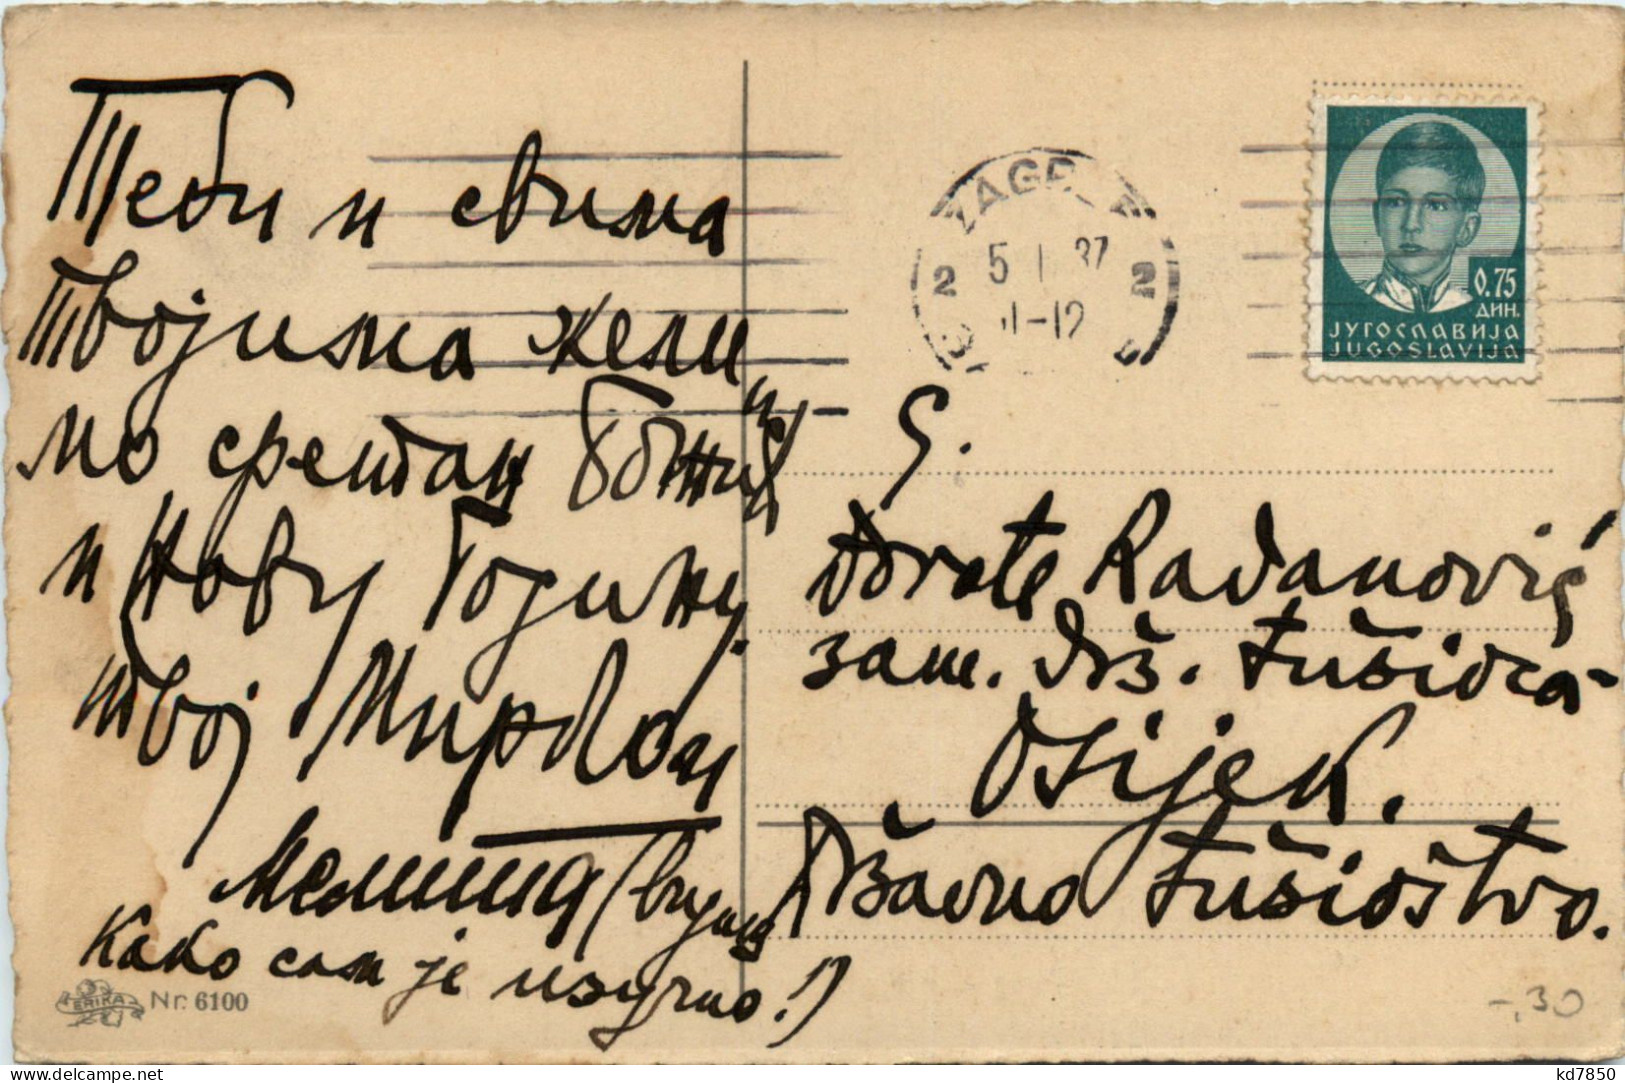 Теби и свима
твојима жели
мо сретан Божић
и Нову Годину.
твој Мирко и
Мелита (видиш
како сам је изучио!)
ERIKA Nr. 6100
ZAGREB
2 5 I 37 2
11-12
0.75
ДИН.
ЈУГОСЛАВИЈА
JUGOSLAVIJA
G.
Radanović
zam. drž. tužioca
Osijek.
Državno tužioštvo.
-.30
delcampe.net
kd7850